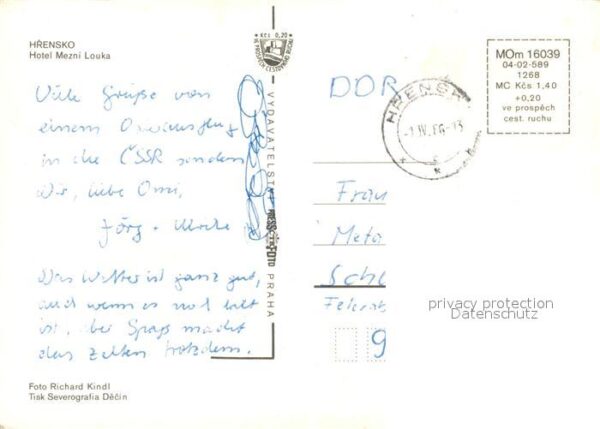 HŘENSKO
Hotel Mezní Louka
Kčs 0,20
VE PROSPĚCH CESTOVNÍHO RUCHU
MOm 16039
04-02-589
1268
MC Kčs 1,40
+0,20
ve prospěch
cest. ruchu
DDR
HŘENSK
Viele Grüße von
einem
in die ČSSR senden
wir, liebe Omi,
Jörg +
Das Wetter ist ganz gut,
und wenn es mal kalt
ist, der Spaß macht
das Zelten trotzdem.
VYDAVATELSTVÍ PRESSFOTO PRAHA
Frau
Meta
Sch
9
privacy protection
Datenschutz
Foto Richard Kindl
Tisk Severografia Děčín